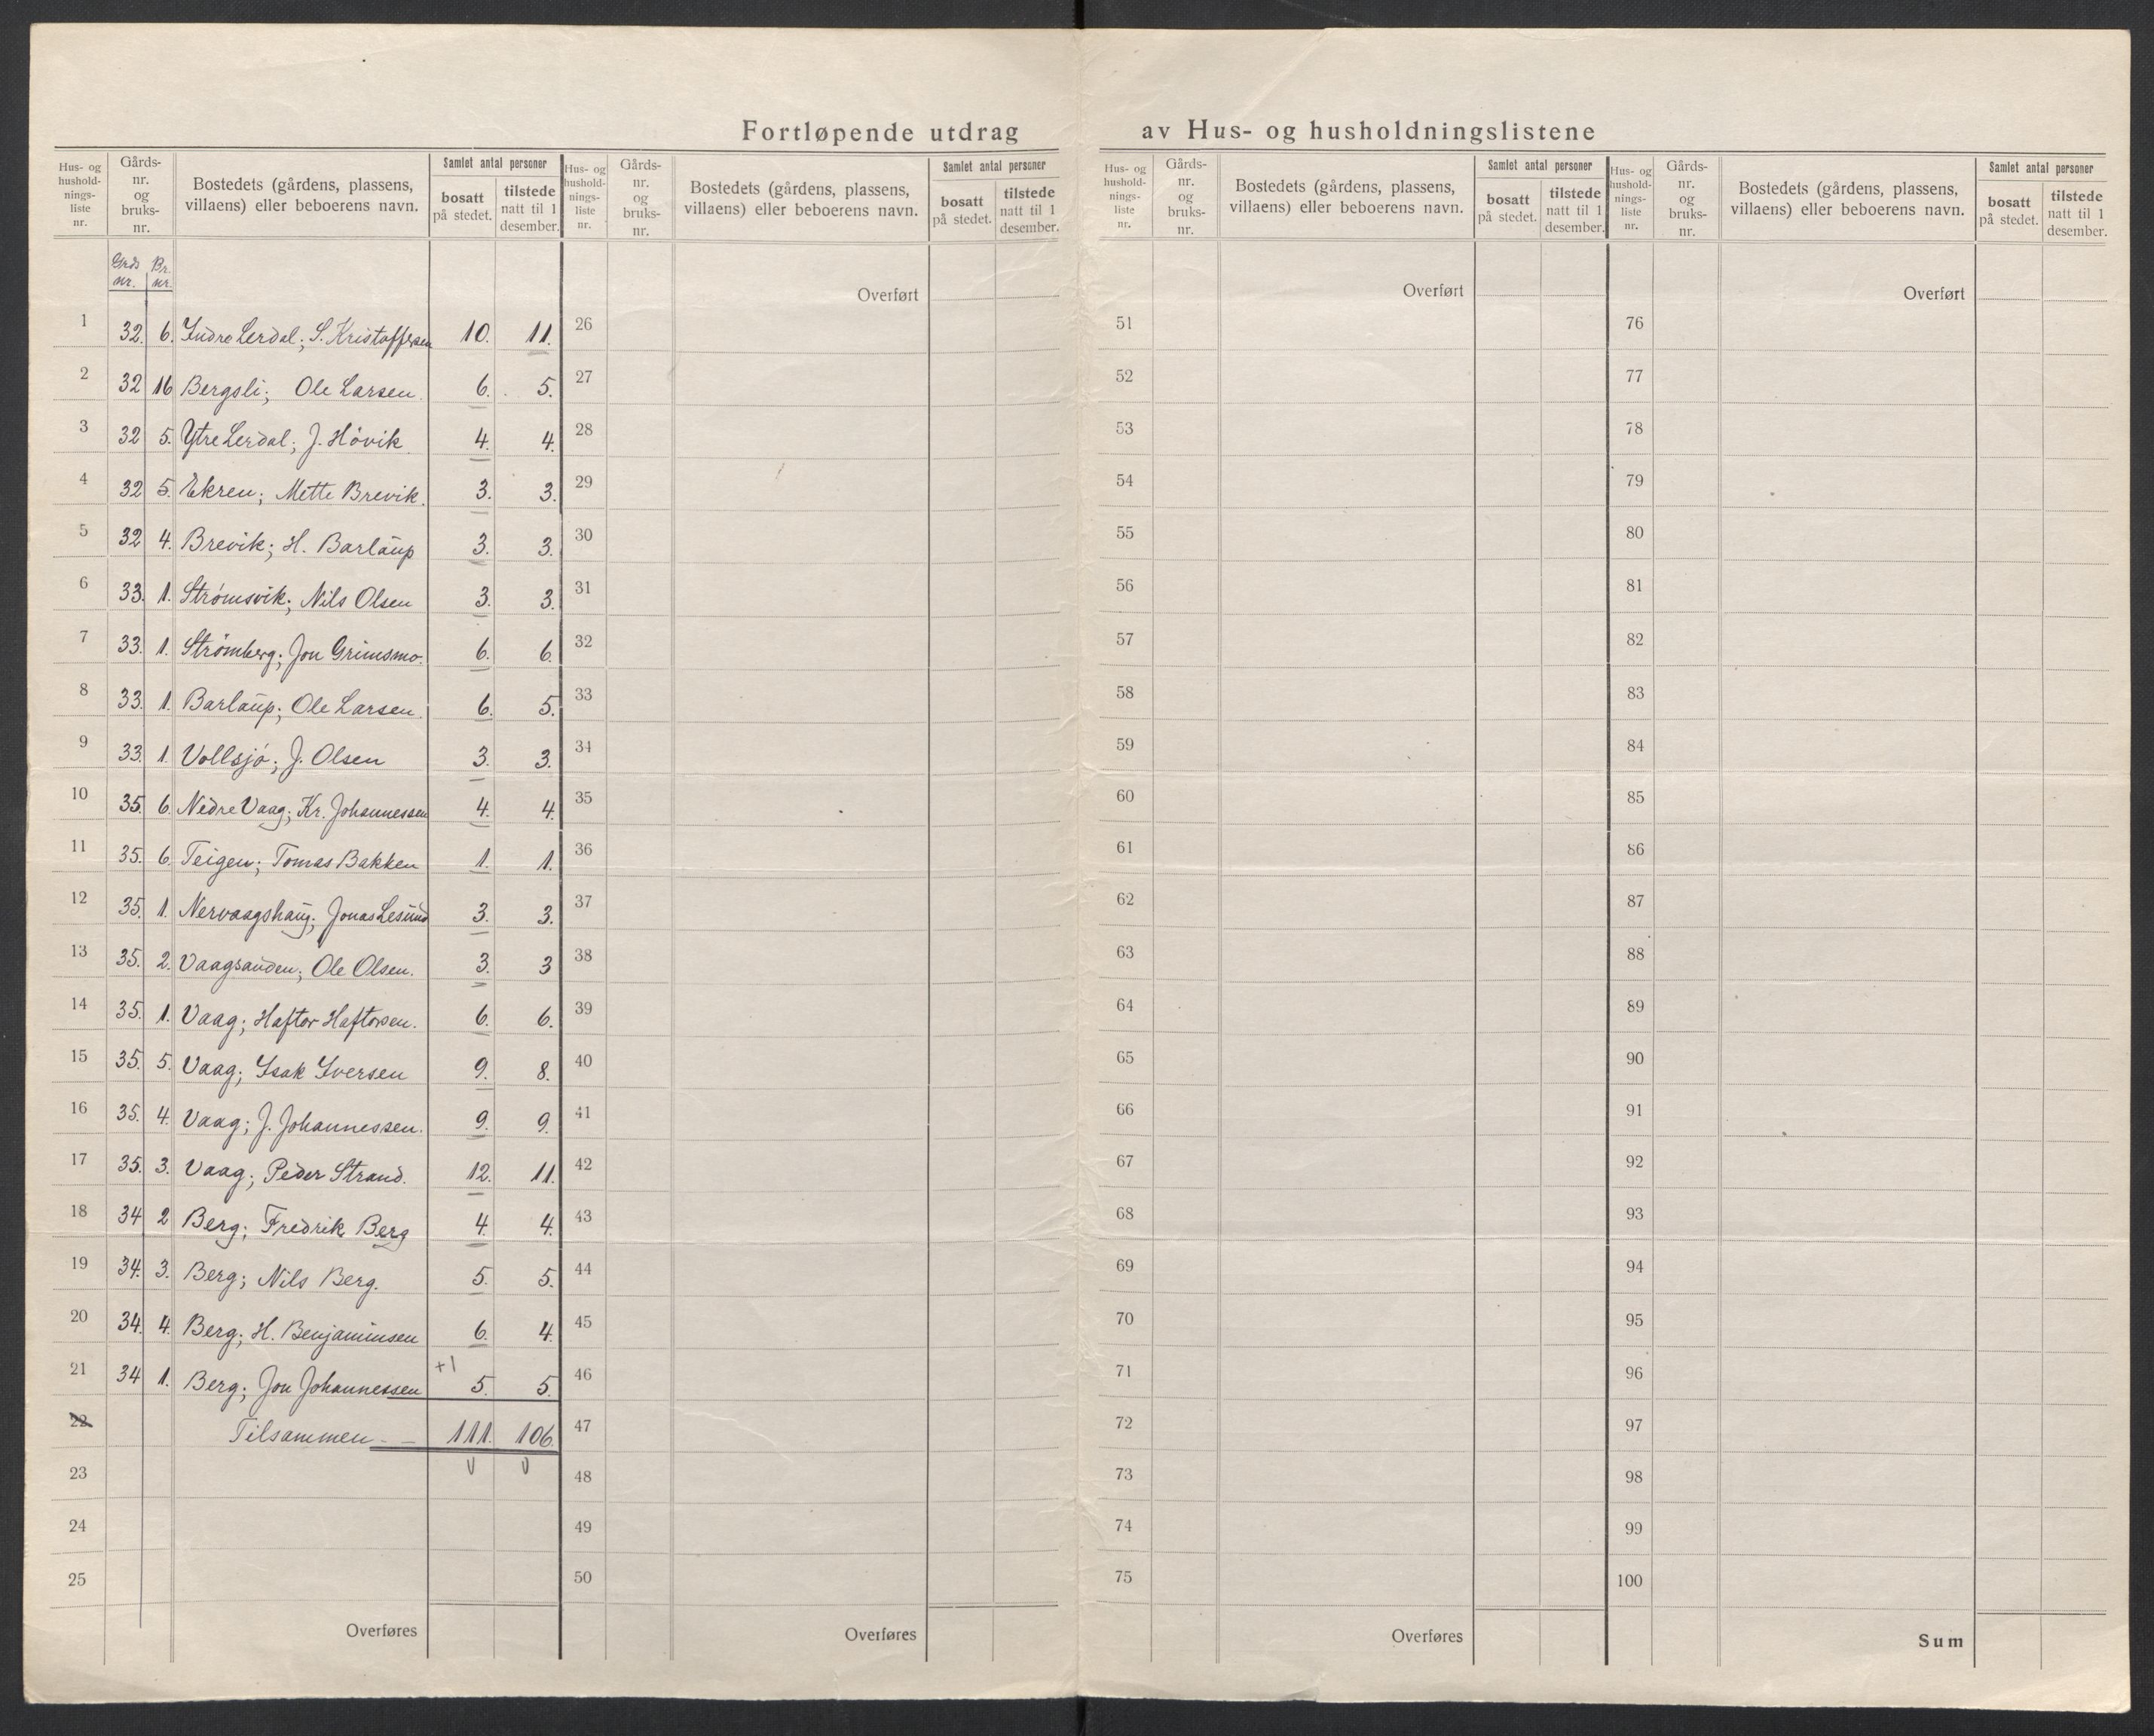 Fortløpende utdrag av Hus- og husholdningslistene
Hus- og husholdnings-liste nr. Gårds-nr. og bruks-nr. Bostedets (gårdens, plassens, villaens) eller beboerens navn. Samlet antal personer bosatt på stedet. tilstede natt til 1 desember.
Hus- og husholdnings-liste nr. Gårds-nr. og bruks-nr. Bostedets (gårdens, plassens, villaens) eller beboerens navn. Samlet antal personer bosatt på stedet. tilstede natt til 1 desember.
Hus- og husholdnings-liste nr. Gårds-nr. og bruks-nr. Bostedets (gårdens, plassens, villaens) eller beboerens navn. Samlet antal personer bosatt på stedet. tilstede natt til 1 desember.
Hus- og husholdnings-liste nr. Gårds-nr. og bruks-nr. Bostedets (gårdens, plassens, villaens) eller beboerens navn. Samlet antal personer bosatt på stedet. tilstede natt til 1 desember.
Grds nr. Br. nr.
Overført Overført Overført
1 32. 6. Indre Lerdal; S. Kristoffersen 10. 11. 26 51 76
2 32 16 Bergsli; Ole Larsen. 6. 5. 27 52 77
3 32 5. Ytre Lerdal; J. Hövik. 4. 4. 28 53 78
4 32 5. Ekren; Mette Brevik. 3. 3. 29 54 79
5 32 4. Brevik; H. Barlaup 3. 3. 30 55 80
6 33. 1. Strömsvik; Nils Olsen 3. 3. 31 56 81
7 33. 1. Strömberg; Jon Grimsmo. 6. 6. 32 57 82
8 33. 1. Barlaup; Ole Larsen. 6. 5. 33 58 83
9 33. 1. Vollsjö; J. Olsen 3. 3. 34 59 84
10 35. 6. Nedre Vaag; Kr. Johannessen 4. 4. 35 60 85
11 35. 6. Teigen; Tomas Bakken 1. 1. 36 61 86
12 35. 1. Nervaagshaug; Jonas Lesund 3. 3. 37 62 87
13 35. 2. Vaagsanden; Ole Olsen. 3. 3 38 63 88
14 35. 1. Vaag; Haftor Haftorsen. 6. 6. 39 64 89
15 35. 5. Vaag; Isak Iversen 9. 8. 40 65 90
16 35. 4. Vaag; J. Johannessen. 9. 9. 41 66 91
17 35. 3. Vaag; Peder Strand. 12. 11. 42 67 92
18 34 2 Berg; Fredrik Berg 4. 4. 43 68 93
19 34. 3. Berg; Nils Berg. 5. 5. 44 69 94
20 34. 4. Berg; H. Benjaminsen 6. 4. 45 70 95
+1
21 34 1. Berg; Jon Johannessen 5. 5. 46 71 96
22 Tilsammen - - 111. 106. 47 72 97
23 48 73 98
24 49 74 99
25 50 75 100
Overføres Overføres Overføres Sum